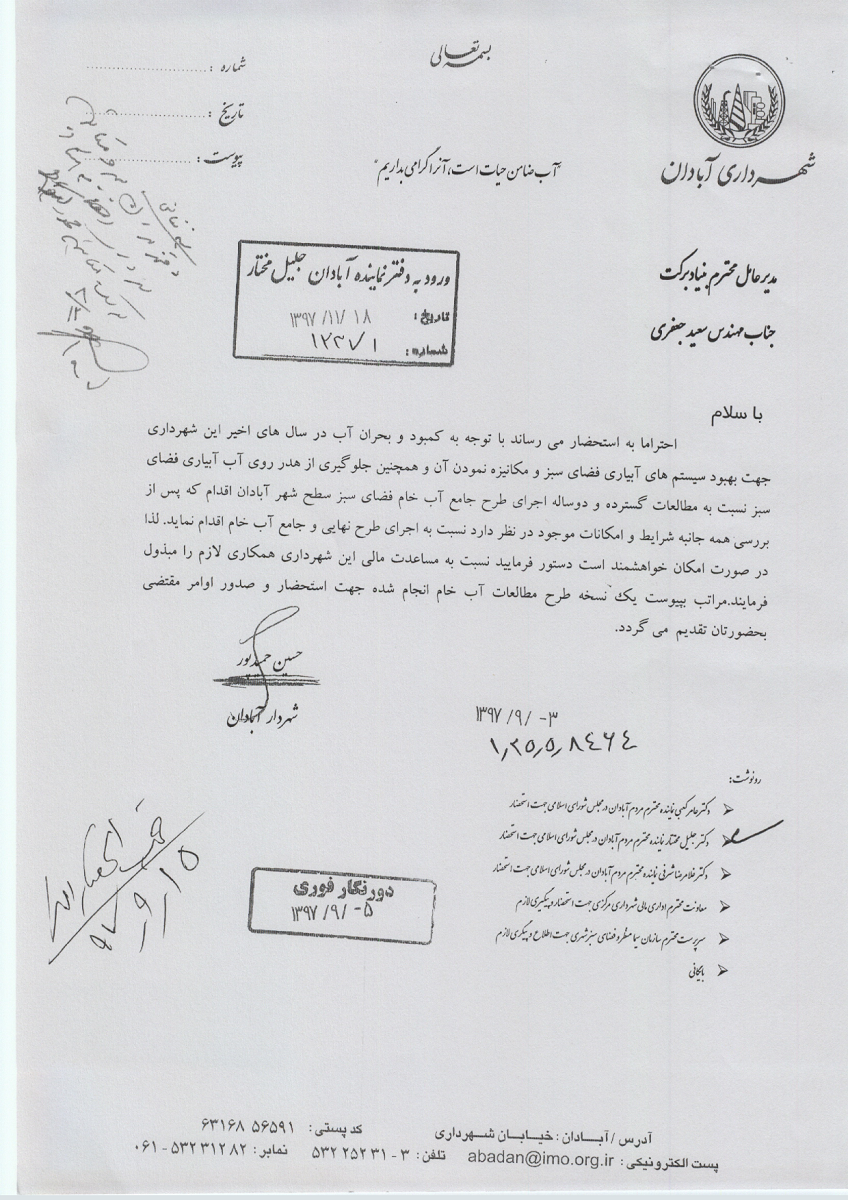 بسمه تعالی
شماره :
تاریخ :
پیوست :
شهرداری آبادان
"آب ضامن حیات است، آنرا گرامی بداریم"
مدیرعامل محترم بنیاد برکت
جناب مهندس سعید جعفری
ورود به دفتر نماینده آبادان جلیل مختار
تاریخ: ۱۳۹۷/۱۱/۱۸
شماره: ۱۲۲۷/۱
با سلام
احتراما به استحضار می رساند با توجه به کمبود و بحران آب در سال های اخیر این شهرداری
جهت بهبود سیستم های آبیاری فضای سبز و مکانیزه نمودن آن و همچنین جلوگیری از هدر روی آب آبیاری فضای
سبز نسبت به مطالعات گسترده و دوساله اجرای طرح جامع آب خام فضای سبز سطح شهر آبادان اقدام که پس از
بررسی همه جانبه شرایط و امکانات موجود در نظر دارد نسبت به اجرای طرح نهایی و جامع آب خام اقدام نماید. لذا
در صورت امکان خواهشمند است دستور فرمایید نسبت به مساعدت مالی این شهرداری همکاری لازم را مبذول
فرمایند.مراتب بپیوست یک نسخه طرح مطالعات آب خام انجام شده جهت استحضار و صدور اوامر مقتضی
بحضورتان تقدیم می گردد.
حسین حمیدپور
شهردار آبادان
۱۳۹۷/۹/۰۳
۱٫۲۵٫۵٫۸۴۶۴
رونوشت:
دکتر عامر کعبی نماینده محترم مردم آبادان در مجلس شورای اسلامی جهت استحضار
دکتر جلیل مختار نماینده محترم مردم آبادان در مجلس شورای اسلامی جهت استحضار
دکتر غلامرضا شرفی نماینده محترم مردم آبادان در مجلس شورای اسلامی جهت استحضار
معاونت محترم اداری مالی شهرداری مرکزی جهت استحضار و پیگیری لازم
سرپرست محترم سازمان سیما منظر و فضای سبز شهری جهت اطلاع و پیگیری لازم
بایگانی
دورنگار فوری
۱۳۹۷/۹/۰۵
۹۷/۹/۱۵
آدرس / آبادان : خیابان شهرداری کد پستی: ۵۶۵۹۱ ۶۳۱۶۸
پست الکترونیکی : abadan@imo.org.ir تلفن: ۳ - ۳۱ ۲۵۲ ۵۳۲ نمابر: ۸۲ ۳۱۲ ۵۳۲ - ۰۶۱